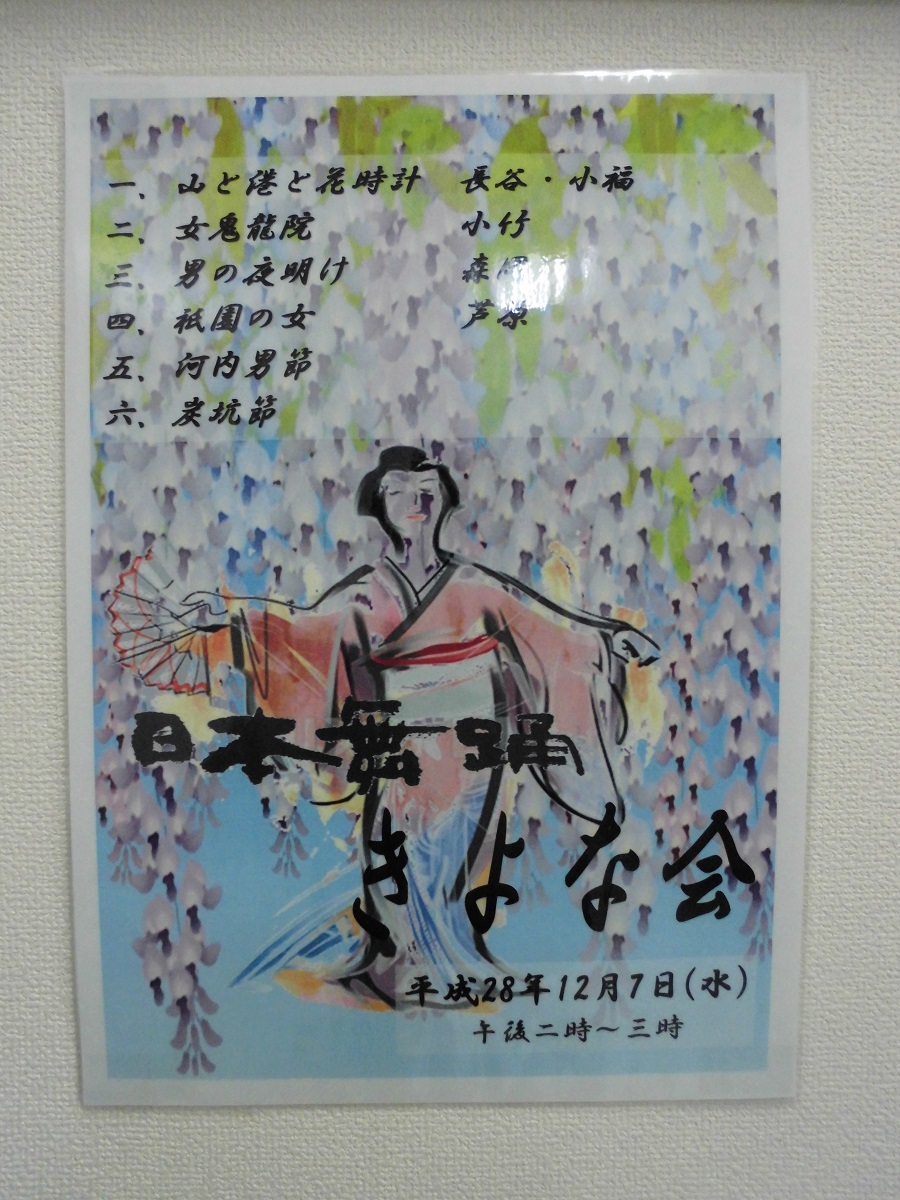 一、 山と港と花時計 長谷・小福
二、 女鬼龍院 小竹
三、 男の夜明け 森
四、 祇園の女 芦原
五、 河内男節
六、 炭坑節
日本舞踊
きよな会
平成28年12月7日(水)
午後二時～三時